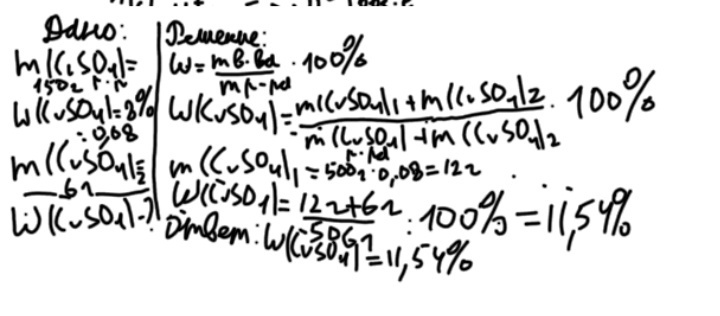 Дано:
m(CuSO4)=
150г р-р
W(CuSO4)=8%
=0,08
m(CuSO4)2=
6г
W(CuSO4)-?
Решение:
W= mв.ва / mр-ра · 100%
W(CuSO4)= m(CuSO4)1+m(CuSO4)2 / m(CuSO4)+m(CuSO4)2 · 100%
р-ра
m(CuSO4)1=500г·0,08=12г
W(CuSO4)= 12г+6г / 506г : 100%=11,54%
Ответ: W(CuSO4)=11,54%